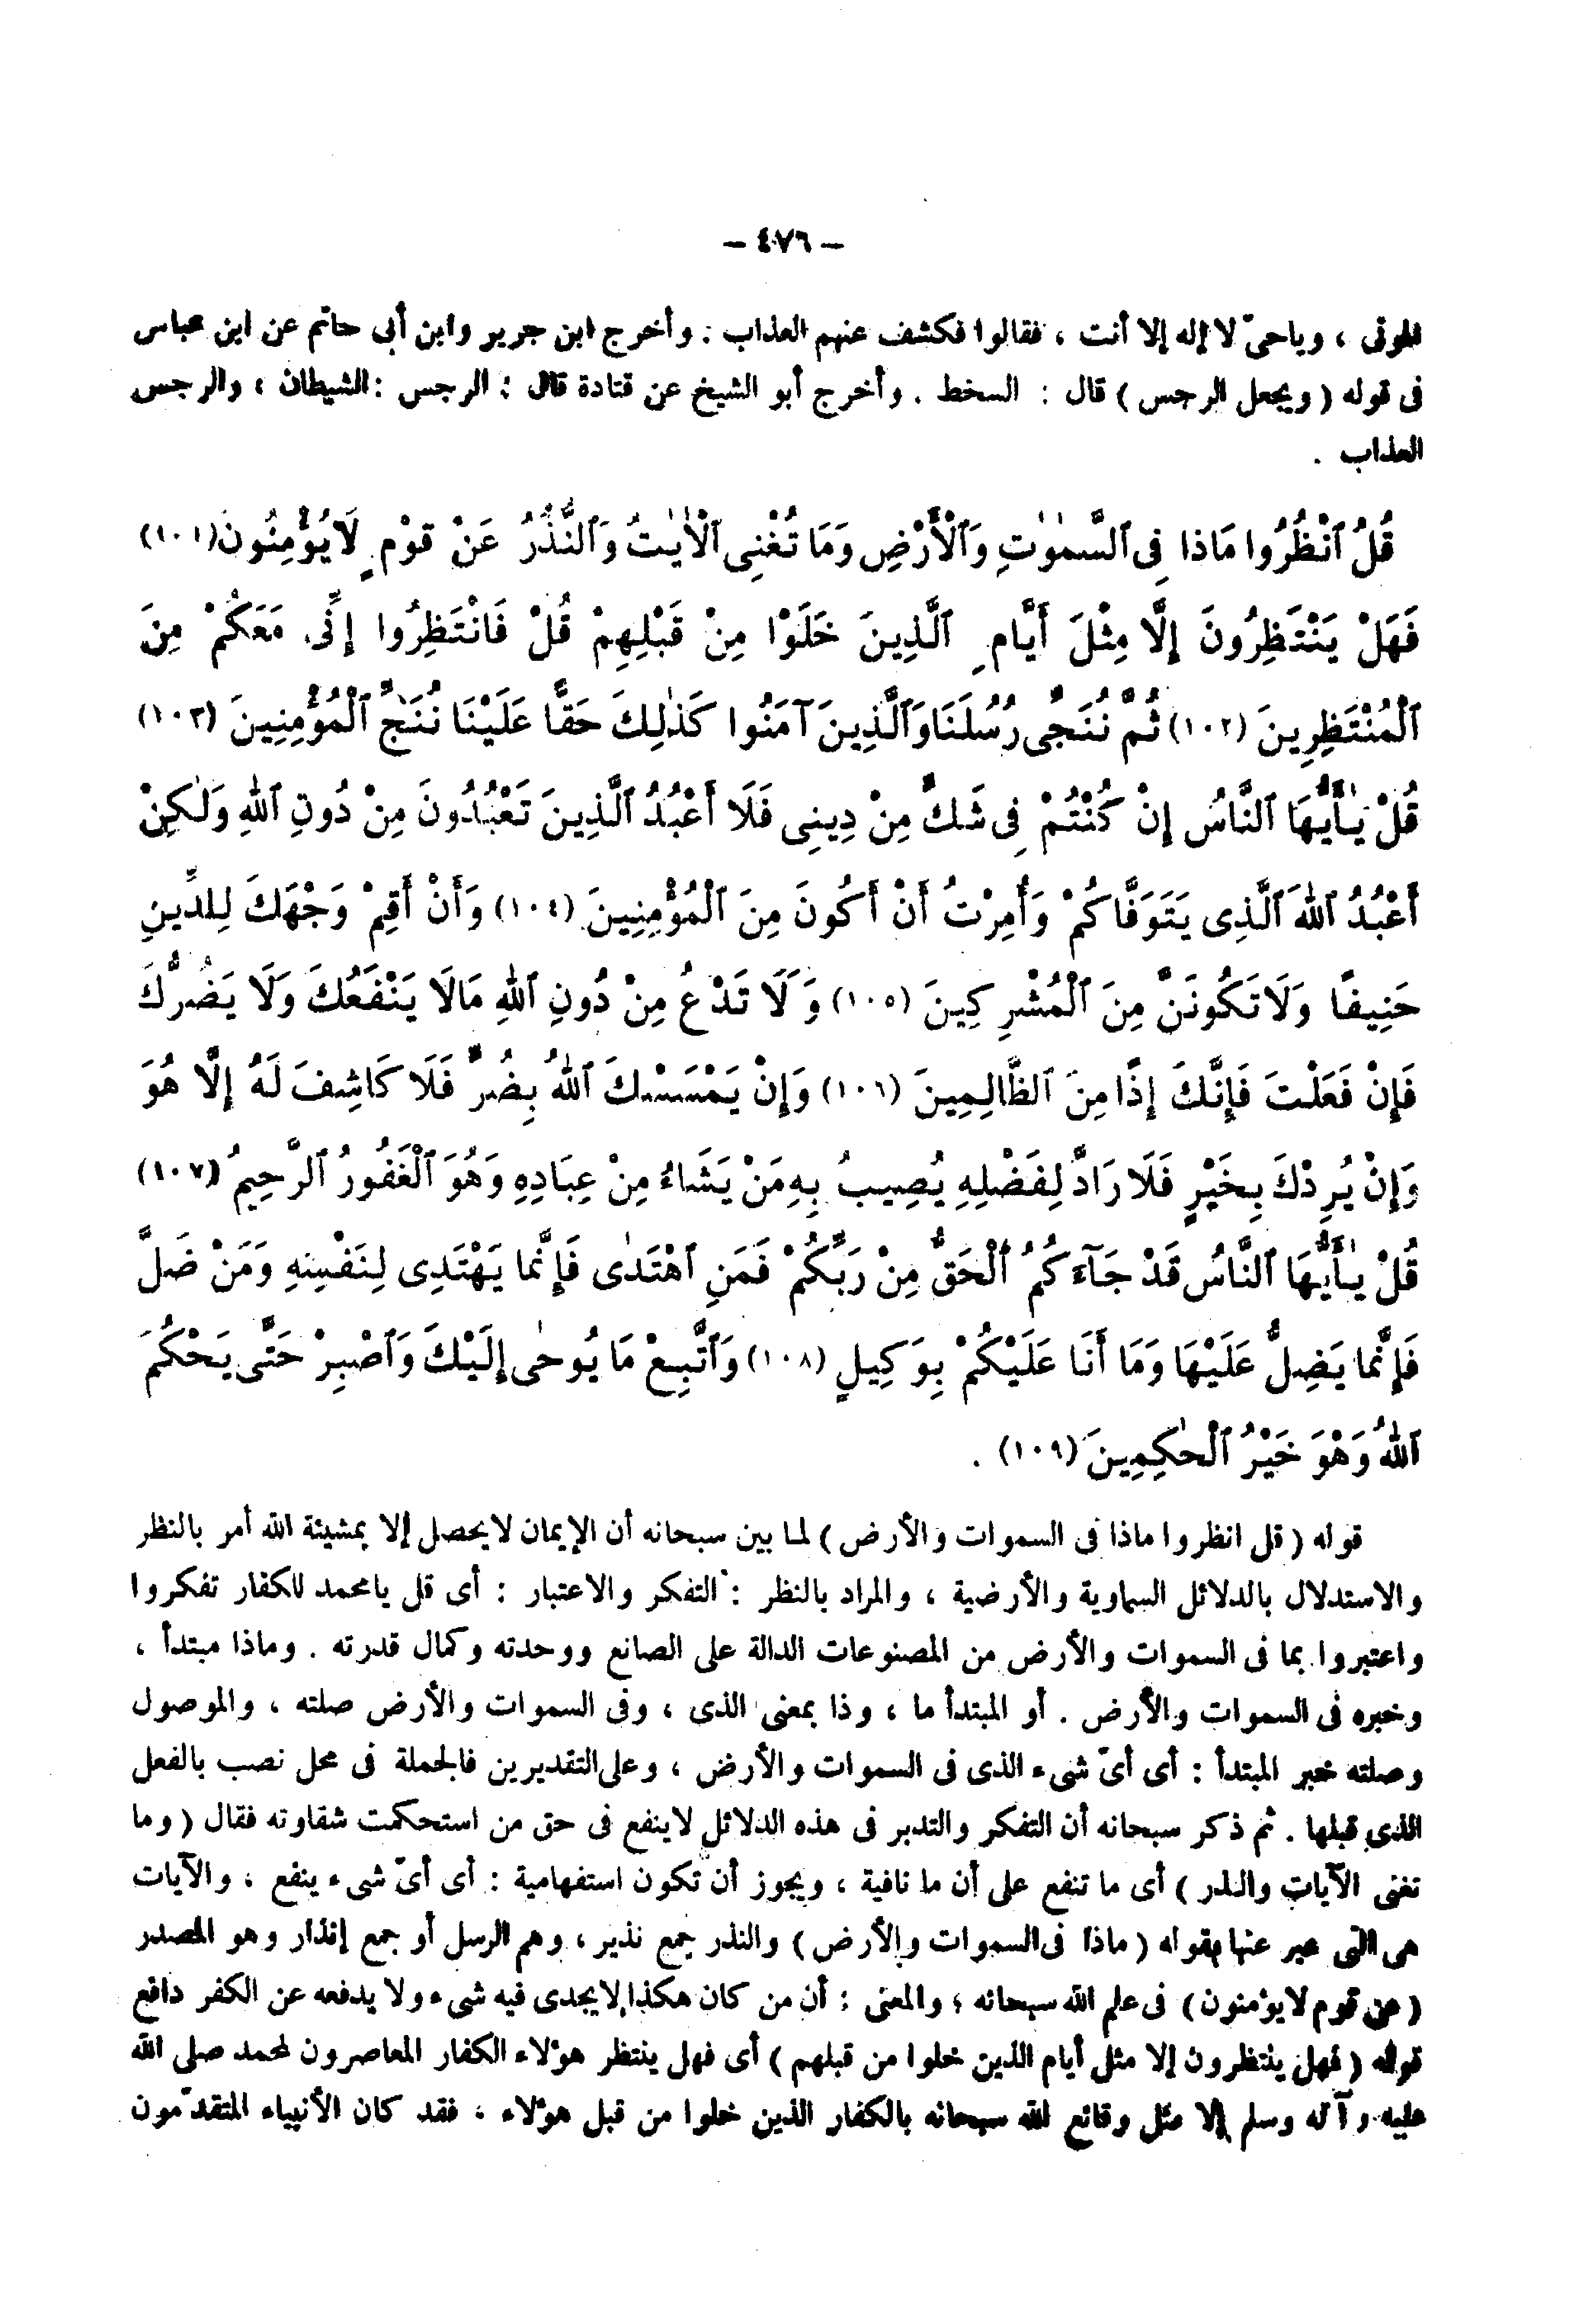 – ٤٧٦ –
الموتى ، وياحىّ لا إله إلا أنت ، فقالوا فكشف عنهم العذاب . وأخرج ابن جرير وابن أبى حاتم عن ابن عباس
فى قوله ( ويجعل الرجس ) قال : السخط . وأخرج أبو الشيخ عن قتادة قال : الرجس : الشيطان ، والرجس
العذاب .
قُلُ ٱنْظُرُوا مَاذا فِى ٱلسَّمٰوٰتِ وَٱلْأَرْضِ وَمَا تُغْنِى ٱلْاٰيٰتُ وَٱلنُّذُرُ عَنْ قَوْمٍ لَايُؤْمِنُونَ(١٠١)
فَهَلْ يَنْتَظِرُونَ إِلَّا مِثْلَ أَيَّامِ ٱلَّذِينَ خَلَوْا مِنْ قَبْلِهِمْ قُلْ فَانْتَظِرُوا إِنِّى مَعَكُمْ مِنَ
ٱلْمُنْتَظِرِينَ (١٠٢) ثُمَّ نُنَجِّى رُسُلَنَا وَٱلَّذِينَ آمَنُوا كَذٰلِكَ حَقًّا عَلَيْنَا نُنَجِّ ٱلْمُؤْمِنِينَ (١٠٣)
قُلْ يٰأَيُّهَا ٱلنَّاسُ إِنْ كُنْتُمْ فِى شَكٍّ مِنْ دِينِى فَلَا أَعْبُدُ ٱلَّذِينَ تَعْبُدُونَ مِنْ دُونِ ٱللهِ وَلٰكِنْ
أَعْبُدُ ٱللهَ ٱلَّذِى يَتَوَفَّاكُمْ وَأُمِرْتُ أَنْ أَكُونَ مِنَ ٱلْمُؤْمِنِينَ (١٠٤) وَأَنْ أَقِمْ وَجْهَكَ لِلدِّينِ
حَنِيفًا وَلَاتَكُونَنَّ مِنَ ٱلْمُشْرِكِينَ (١٠٥) وَلَا تَدْعُ مِنْ دُونِ ٱللهِ مَالَا يَنْفَعُكَ وَلَا يَضُرُّكَ
فَإِنْ فَعَلْتَ فَإِنَّكَ إِذًا مِنَ ٱلظَّالِمِينَ (١٠٦) وَإِنْ يَمْسَسْكَ ٱللهُ بِضُرٍّ فَلَا كَاشِفَ لَهُ إِلَّا هُوَ
وَإِنْ يُرِدْكَ بِخَيْرٍ فَلَا رَادَّ لِفَضْلِهِ يُصِيبُ بِهِ مَنْ يَشَاءُ مِنْ عِبَادِهِ وَهُوَ ٱلْغَفُورُ ٱلرَّحِيمُ (١٠٧)
قُلْ يٰأَيُّهَا ٱلنَّاسُ قَدْ جَآءَكُمُ ٱلْحَقُّ مِنْ رَبِّكُمْ فَمَنِ ٱهْتَدٰى فَإِنَّما يَهْتَدِى لِنَفْسِهِ وَمَنْ ضَلَّ
فَإِنَّما يَضِلُّ عَلَيْهَا وَمَا أَنَا عَلَيْكُمْ بِوَكِيلٍ (١٠٨) وَٱتَّبِعْ مَا يُوحٰى إِلَيْكَ وَٱصْبِرْ حَتَّى يَحْكُمَ
ٱللهُ وَهْوَ خَيْرُ ٱلْحٰكِمِينَ (١٠٩) .
قوله ( قل انظروا ماذا فى السموات والأرض ) لما بين سبحانه أن الإيمان لايحصل إلا بمشيئة الله أمر بالنظر
والاستدلال بالدلائل السماوية والأرضية ، والمراد بالنظر : التفكر والاعتبار : أى قل يامحمد للكفار تفكروا
واعتبروا بما فى السموات والأرض من المصنوعات الدالة على الصانع ووحدته وكمال قدرته . وماذا مبتدأ ،
وخبره فى السموات والأرض . أو المبتدأ ما ، وذا بمعنى الذى ، وفى السموات والأرض صلته ، والموصول
وصلته خبر المبتدأ : أى أىّ شىء الذى فى السموات والأرض ، وعلى التقديرين فالجملة فى محل نصب بالفعل
الذى قبلها . ثم ذكر سبحانه أن التفكر والتدبر فى هذه الدلائل لاينفع فى حق من استحكمت شقاوته فقال ( وما
تغنى الآيات والنذر ) أى ما تنفع على أن ما نافية ، ويجوز أن تكون استفهامية : أى أىّ شىء ينفع ، والآيات
هى التى عبر عنها بقوله ( ماذا فى السموات والأرض ) والنذر جمع نذير ، وهم الرسل أو جمع إنذار وهو المصدر
( عن قوم لايؤمنون ) فى علم الله سبحانه ؛ والمعنى : أن من كان هكذا لايجدى فيه شىء ولا يدفعه عن الكفر دافع
قوله ( فهل ينتظرون إلا مثل أيام الذين خلوا من قبلهم ) أى فهل ينتظر هؤلاء الكفار المعاصرون لمحمد صلى الله
عليه وآله وسلم إلا مثل وقائع الله سبحانه بالكفار الذين خلوا من قبل هؤلاء ، فقد كان الأنبياء المتقدّمون